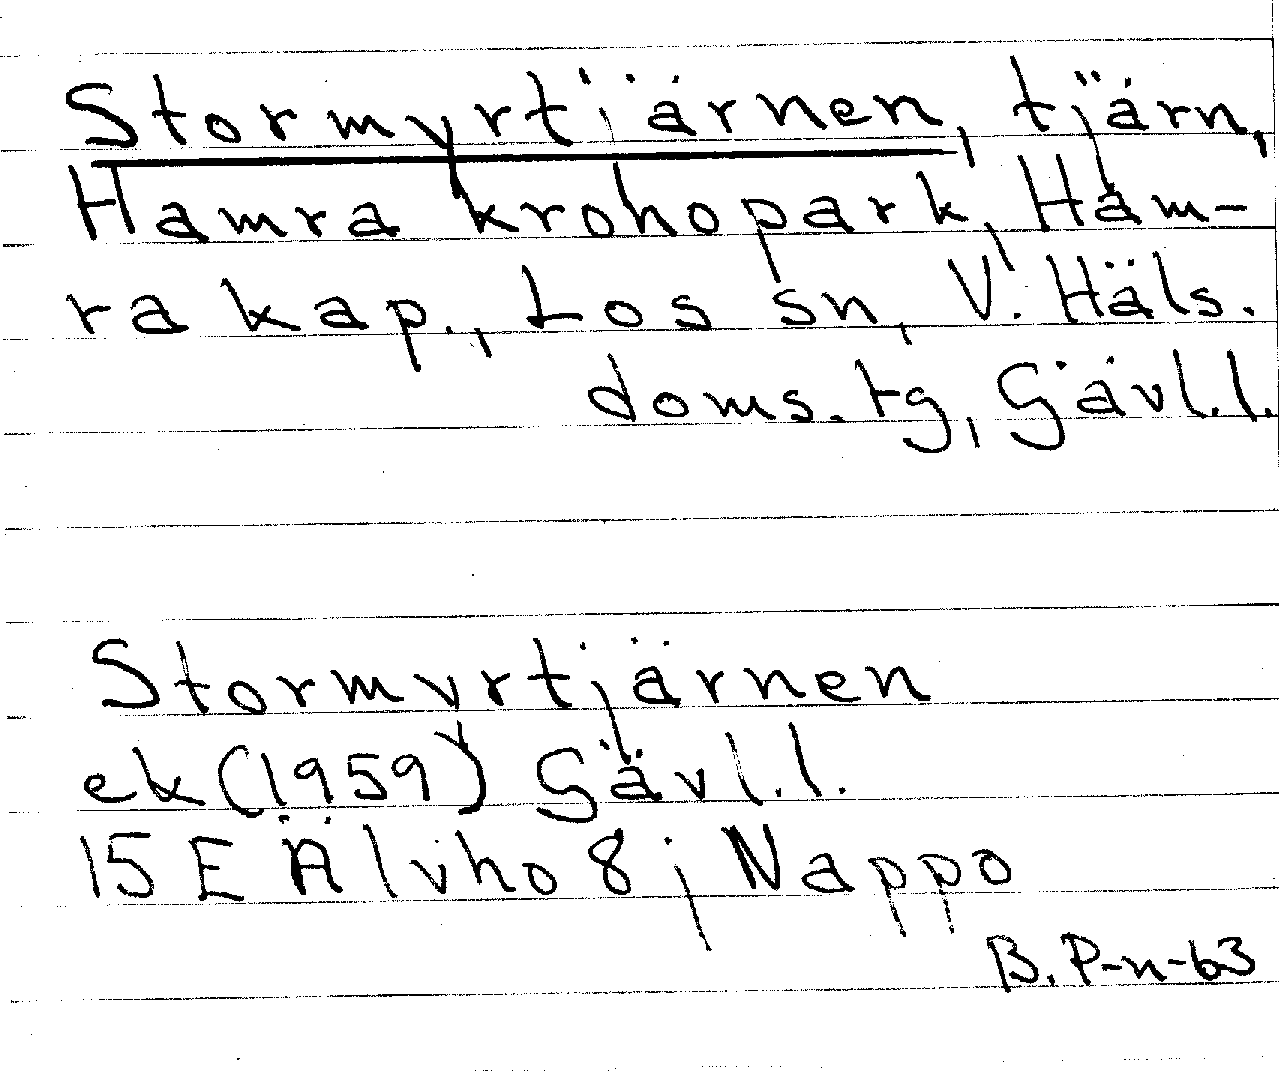 Stormyrtjärnen, tjärn,
Hamra kronopark, Ham-
ra kap., Los sn, V. Häls.
doms. tg, Gävl. l.
Stormyrtjärnen
ek (1959) Gävl. l.
15 E Älvho 8 j Nappo
B. P-n-63